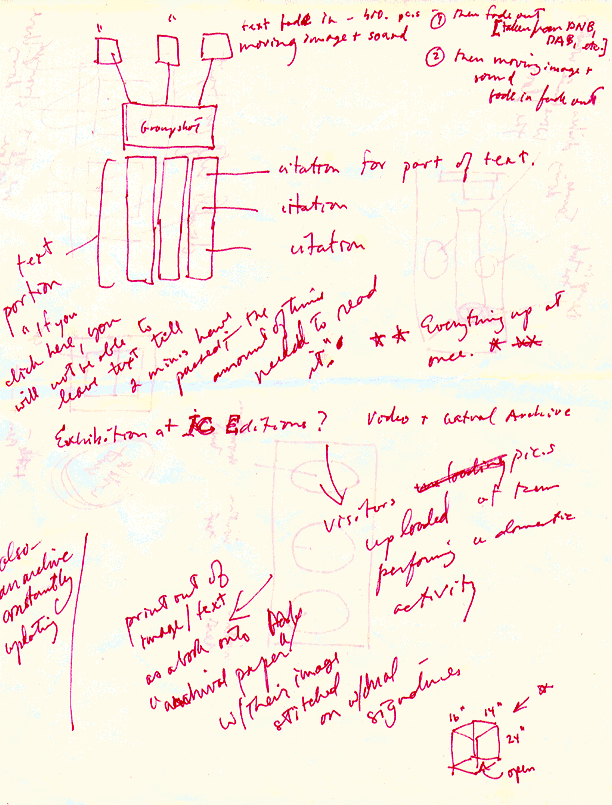 text fade in - bio. pics ① then fade out
[taken from DNB,
DAB, etc.]
moving image + sound
② then moving image +
sound
fade in fade out
Groupshot
citation for part of text.
citation
citation
text
portion
"If you
click here, you
will not be able to
leave text till
2 mins have
passed - the
amount of time
needed to read
it".
** Everything up at
once. *
Exhibition at IC Editions?
Video + Archive
visitors pics
uploaded of them
performing a domestic
activity
also-
an archive
constantly
updating
print out of
image/text
as a book onto
archival paper
w/their image
stitched
on w/dual
signatures
16" 14"
24"
open